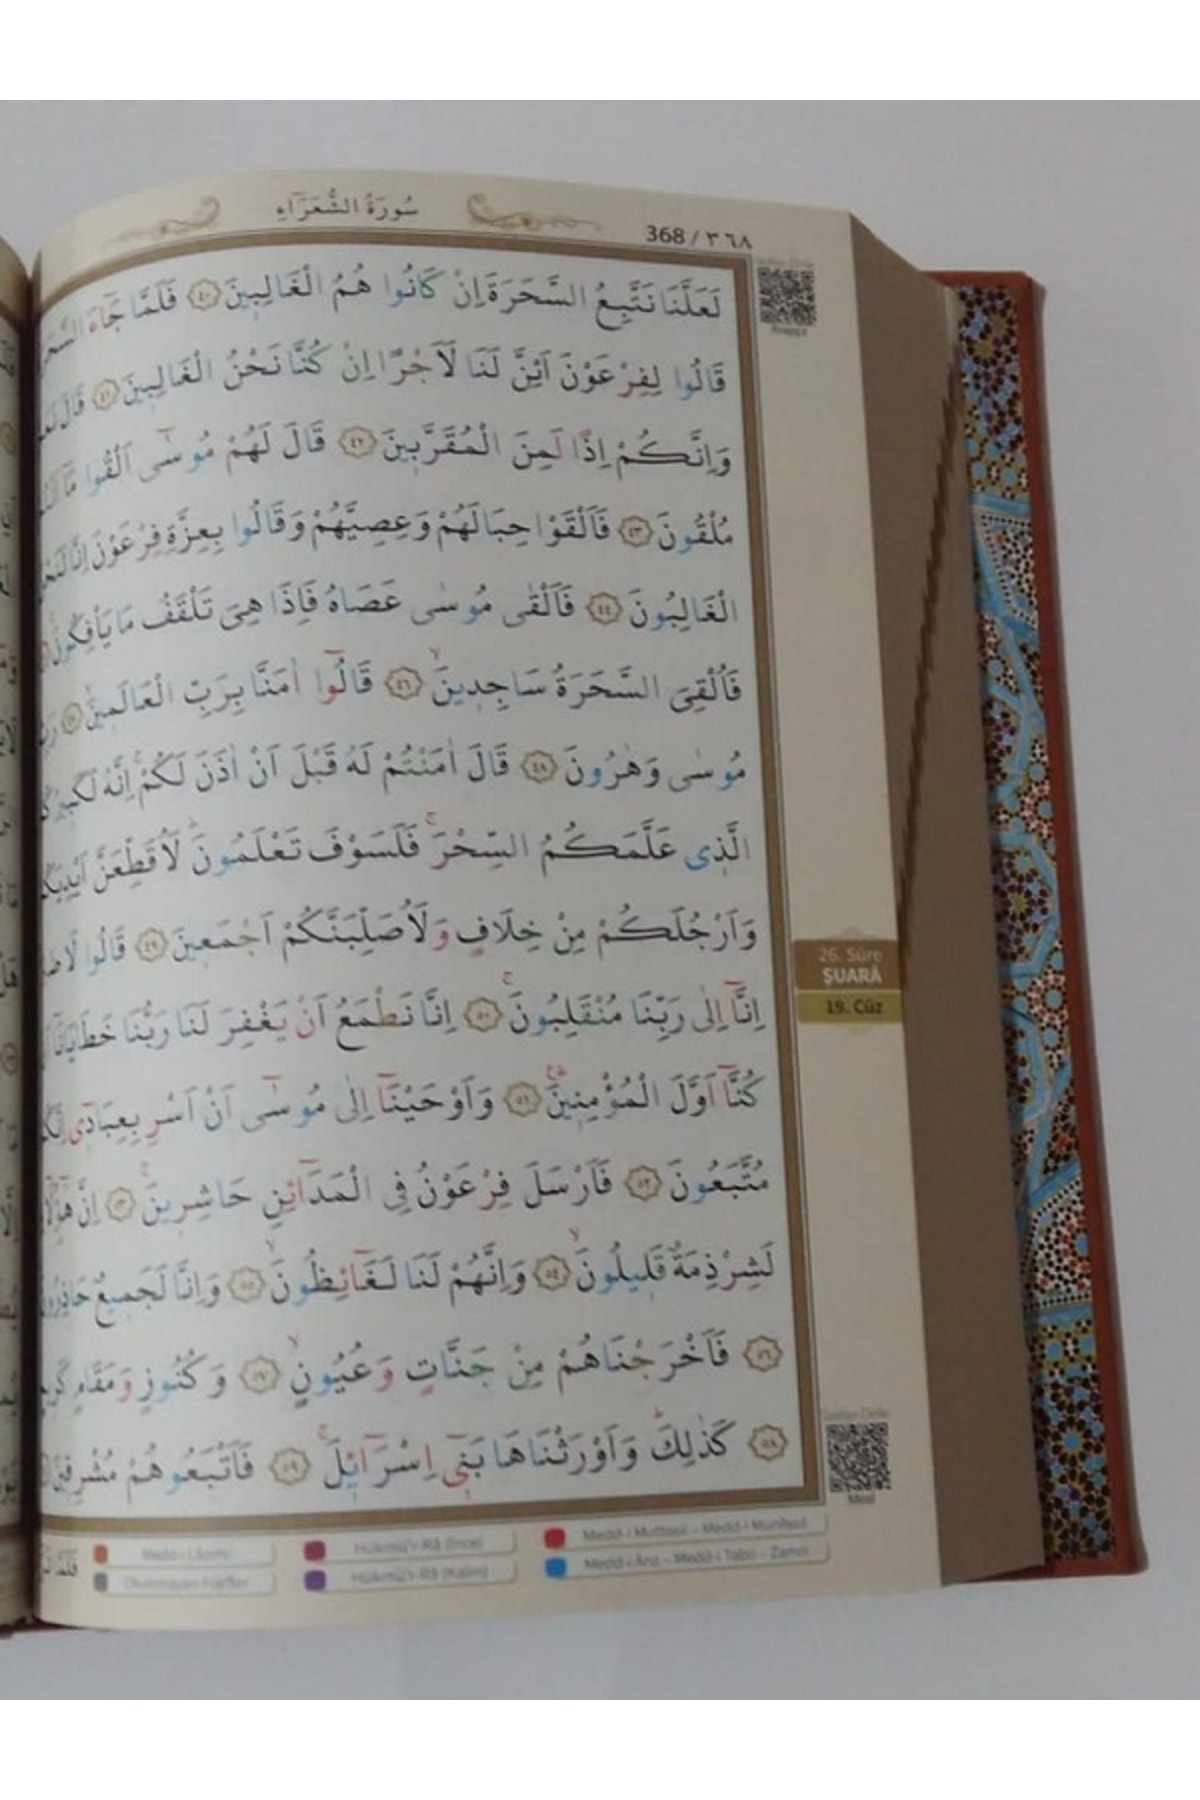 سُورَةُ الشُّعَرَٓاءِ
368 / ٣٦٨
لَعَلَّنَا نَتَّبِعُ السَّحَرَةَ اِنْ كَانُوا هُمُ الْغَالِبٖينَ ٤٠ فَلَمَّا جَٓاءَ
قَالُوا لِفِرْعَوْنَ اَئِنَّ لَنَا لَاَجْرًا اِنْ كُنَّا نَحْنُ الْغَالِبٖينَ ٤١ قَالَ
وَاِنَّكُمْ اِذًا لَمِنَ الْمُقَرَّبٖينَ ٤٢ قَالَ لَهُمْ مُوسٰٓى اَلْقُوا مَٓا
مُلْقُونَ ٤٣ فَاَلْقَوْا حِبَالَهُمْ وَعِصِيَّهُمْ وَقَالُوا بِعِزَّةِ فِرْعَوْنَ اِنَّا
الْغَالِبُونَ ٤٤ فَاَلْقٰى مُوسٰى عَصَاهُ فَاِذَا هِيَ تَلْقَفُ مَا يَاْفِكُونَ
فَاُلْقِيَ السَّحَرَةُ سَاجِدٖينَۙ ٤٦ قَالُٓوا اٰمَنَّا بِرَبِّ الْعَالَمٖينَۙ ٤٧
مُوسٰى وَهٰرُونَ ٤٨ قَالَ اٰمَنْتُمْ لَهُ قَبْلَ اَنْ اٰذَنَ لَكُمْۚ اِنَّهُ
الَّذٖى عَلَّمَكُمُ السِّحْرَۚ فَلَسَوْفَ تَعْلَمُونَؕ لَاُقَطِّعَنَّ
وَاَرْجُلَكُمْ مِنْ خِلَافٍ وَلَاُصَلِّبَنَّكُمْ اَجْمَعٖينَ ٤٩ قَالُوا لَا
اِنَّٓا اِلٰى رَبِّنَا مُنْقَلِبُونَۚ ٥٠ اِنَّا نَطْمَعُ اَنْ يَغْفِرَ لَنَا رَبُّنَا خَطَايَانَٓا
كُنَّٓا اَوَّلَ الْمُؤْمِنٖينَ ٥١ وَاَوْحَيْنَٓا اِلٰى مُوسٰٓى اَنْ اَسْرِ بِعِبَادٖٓى
مُتَّبَعُونَ ٥٢ فَاَرْسَلَ فِرْعَوْنُ فِى الْمَدَٓائِنِ حَاشِرٖينَۚ ٥٣ اِنَّ
لَشِرْذِمَةٌ قَلٖيلُونَۙ ٥٤ وَاِنَّهُمْ لَنَا لَغَٓائِظُونَۙ ٥٥ وَاِنَّا لَجَمٖيعٌ
٥٦ فَاَخْرَجْنَاهُمْ مِنْ جَنَّاتٍ وَعُيُونٍۙ ٥٧ وَكُنُوزٍ وَمَقَامٍ
٥٨ كَذٰلِكَؕ وَاَوْرَثْنَاهَا بَنٖٓى اِسْرَٓائٖلَۚ ٥٩ فَاَتْبَعُوهُمْ
26. Sûre
ŞUARÂ
19. Cüz
Meal
Hükmü'r-Râ (İnce)
Hükmü'r-Râ (Kalın)
Medd-i Muttasıl - Medd-i Munfasıl